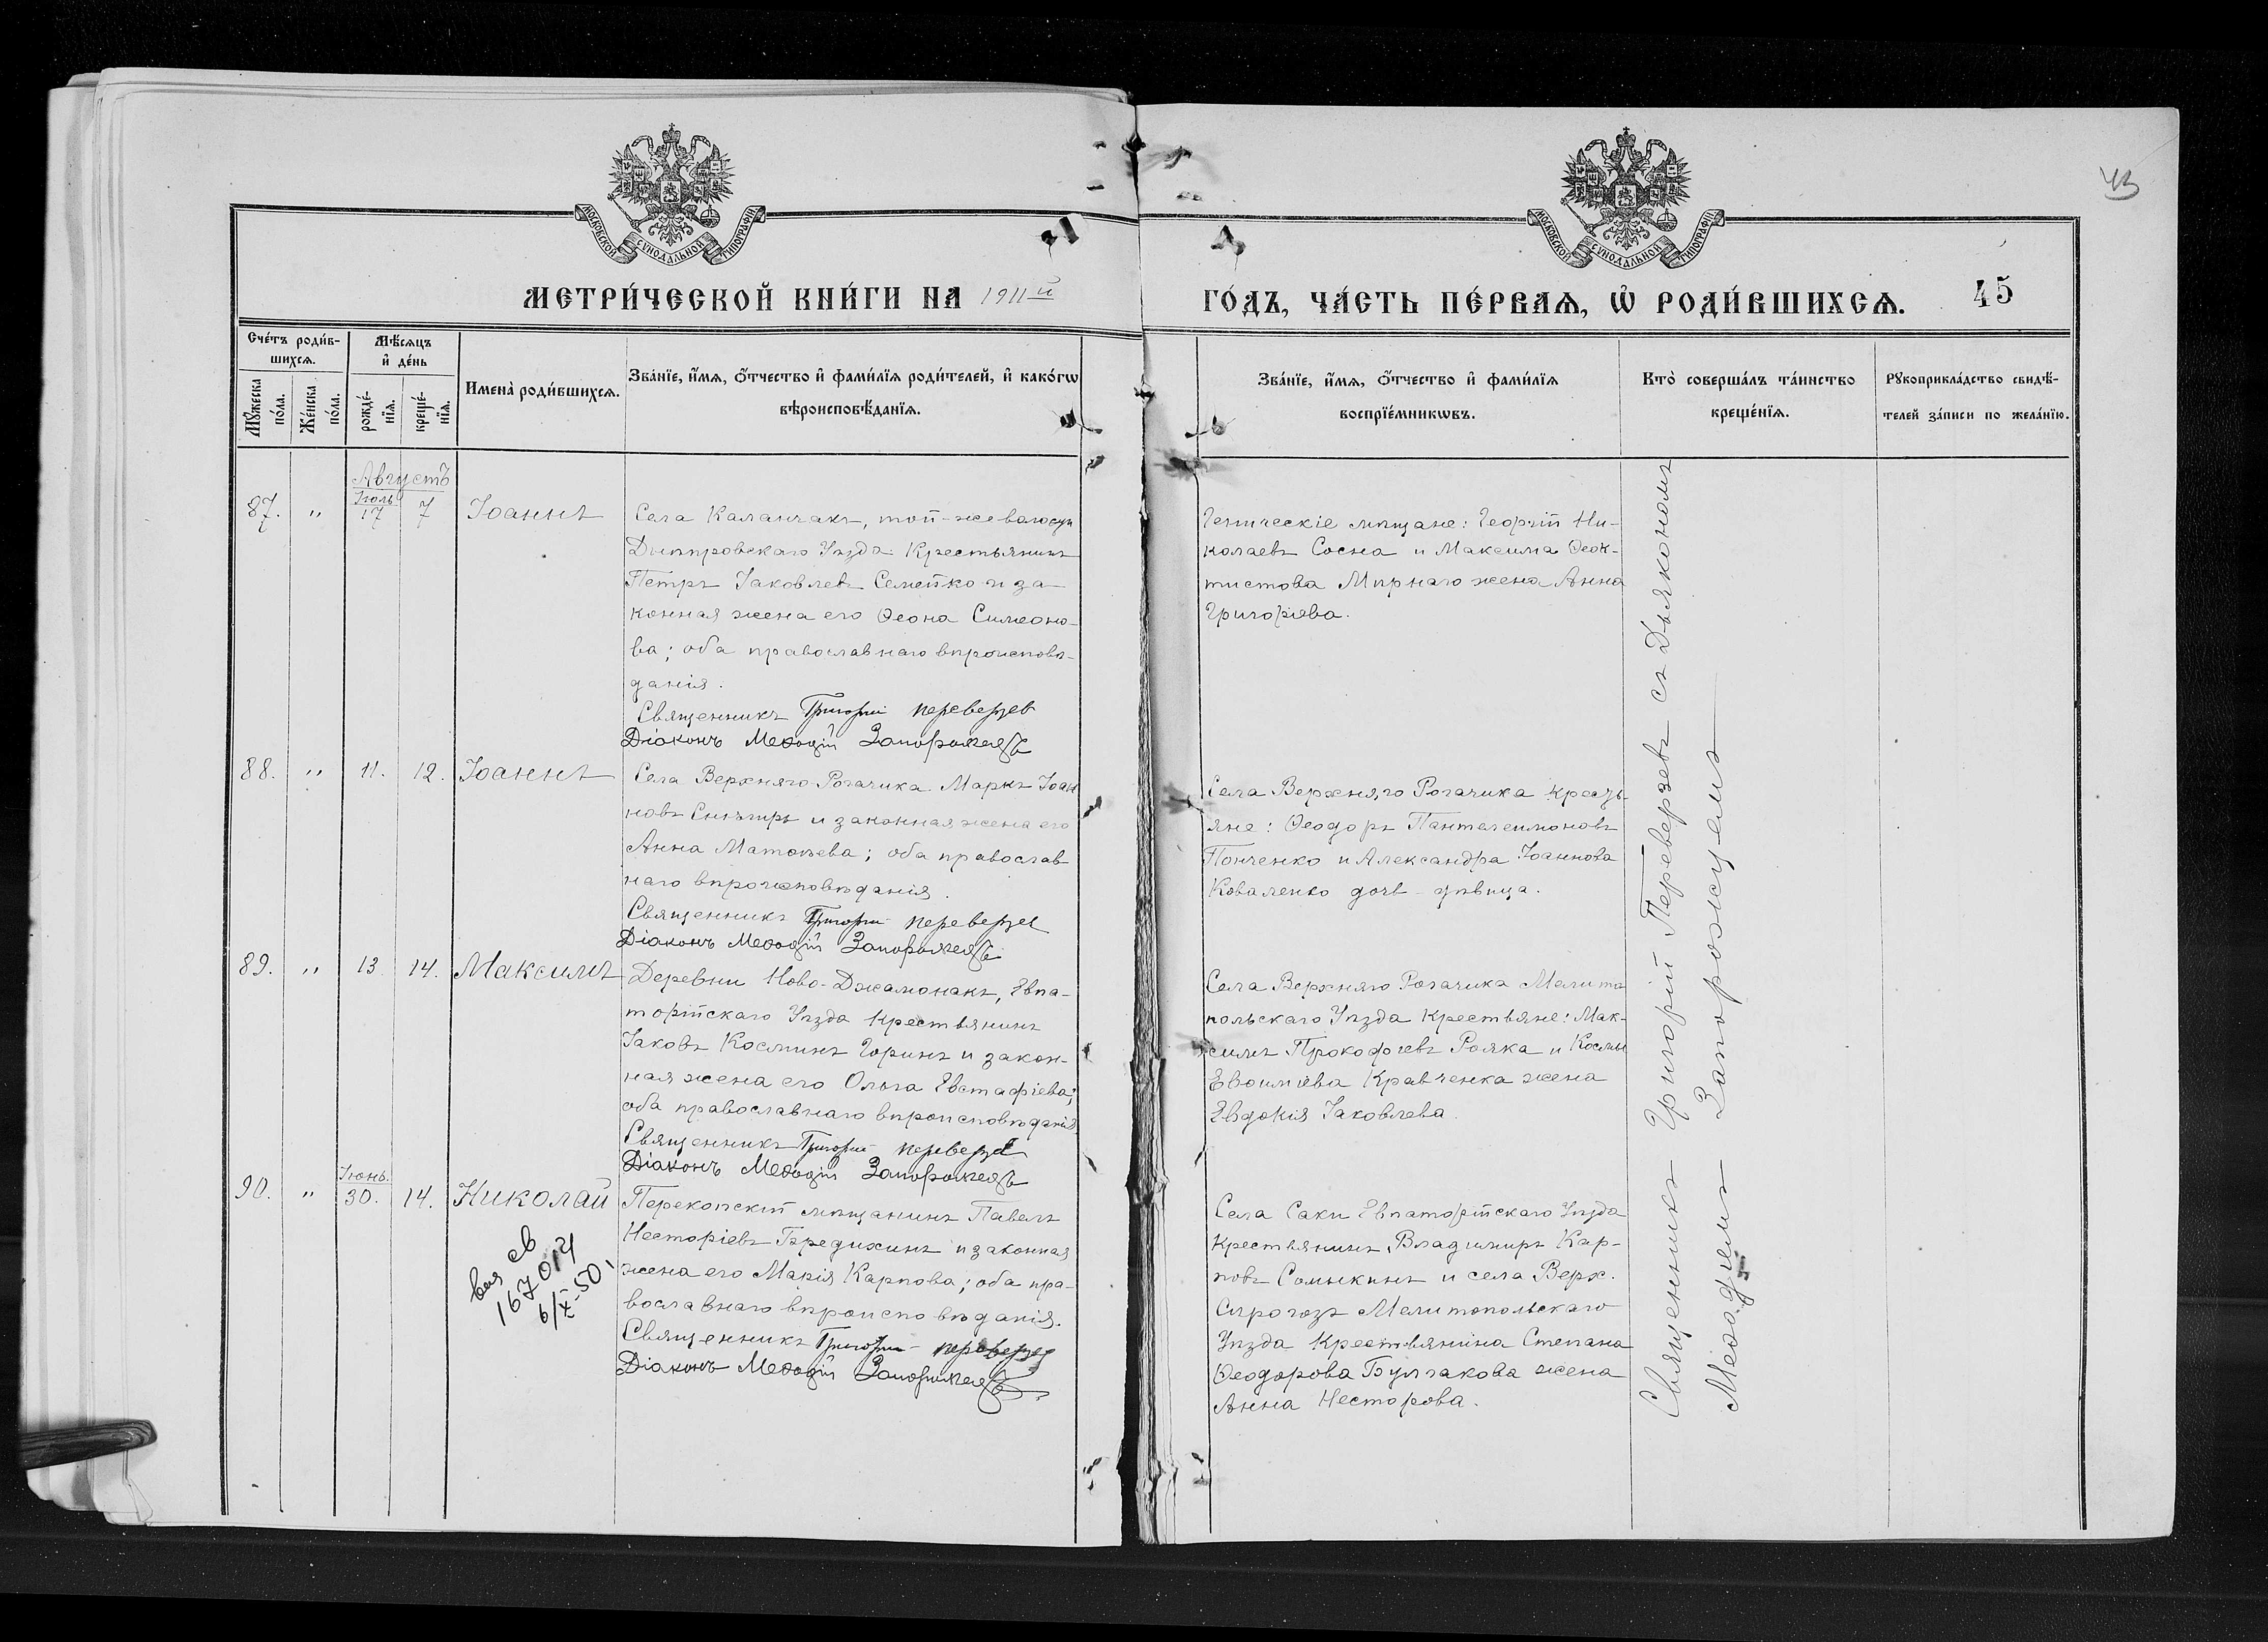 43
МОСКОВСКОЙ СѴНОДАЛЬНОЙ ТИПОГРАФІИ
МОСКОВСКОЙ СѴНОДАЛЬНОЙ ТИПОГРАФІИ
МЕТРИ́ЧЕСКОЙ КНИ́ГИ НА 1911й
ГО́ДЪ, ЧА́СТЬ ПЕ́РВАѦ, Ѡ҆ РОДИ́ВШИХСѦ. 45
Сче́тъ роди́в-
шихсѧ.
Мꙋ́жеска
по́ла.
Же́нска
по́ла.
Мѣ́сѧцъ
и҆ де́нь
рожде́-
нїѧ.
креще́-
нїѧ.
Имена̀ роди́вшихсѧ.
Зва́нїе, и҆́мѧ, ѻ҆́тчество и҆ фами́лїѧ роди́телей, и҆ како́гѡ
вѣроисповѣ́данїѧ.
Зва́нїе, и҆́мѧ, ѻ҆́тчество и҆ фами́лїѧ
воспрїе́мникѡвъ.
Кто̀ соверша́лъ та́инство
креще́нїѧ.
Рꙋкоприкла́дство свидѣ́-
телей за́писи по жела́нїю.
Августъ
87. " Іюль 17 7 Іоаннъ
Села Каланчакъ, той-же волости
Днѣпровскаго Уѣзда Крестьянинъ
Петръ Іаковлевъ Семейко и за-
конная жена его Ѳеона Симеоно-
ва; оба православнаго вѣроисповѣ-
данія.
Священникъ Григорій Переверзев
Діаконъ Меѳодій Запорожецъ
Геническіе мѣщане: Георгій Ни-
колаевъ Сосна и Максима Ѳеок-
тистова Мирнаго жена Анна
Григоріева.
88. " 11. 12. Іоаннъ
Села Верхняго-Рогачика Маркъ Іоан
новъ Снѣгирь и законная жена его
Анна Матѳіева; оба православ
наго вѣроисповѣданія.
Священникъ Григорій Переверзев
Діаконъ Меѳодій Запорожецъ
Села Верхняго Рогачика кресть-
яне: Ѳеодоръ Пантелеимоновъ
Понченко и Александра Іоаннова
Коваленко дочь-дѣвица.
89. " 13 14. Максимъ
Деревни Ново-Джаманакъ, Евпа-
торійскаго Уѣзда Крестьянинъ
Іаковъ Косминъ Горинъ и закон-
ная жена его Ольга Евстафіева;
оба православнаго вѣроисповѣданія.
Священникъ Григорій Переверзев
Діаконъ Меѳодій Запорожецъ
Села Верхняго Рогачика Мелито
польскаго Уѣзда Крестьяне: Мак-
симъ Прокофіевъ Рояка и Космы
Евѳиміева Кравченка жена
Евдокія Іаковлева.
90. " Іюнь. 30. 14. Николай
Перекопскій мѣщанинъ Павелъ
Несторіевъ Бредихинъ и законная
жена его Марія Карпова; оба пра-
вославнаго вѣроисповѣданія.
Священникъ Григорій Переверзев
Діаконъ Меѳодій Запорожецъ
св
167014
6/X-50
Села Саки Евпаторійскаго Уѣзда
Крестьянинъ, Владимиръ Кар-
повъ Сомыкинъ и села Верх.
Сѣрогозъ Мелитопольскаго
Уѣзда Крестьянина Степана
Ѳеодорова Булгакова жена
Анна Несторова.
Священникъ Григорій Переверзевъ съ Дьякономъ
Меѳодіемъ Запорожцемъ